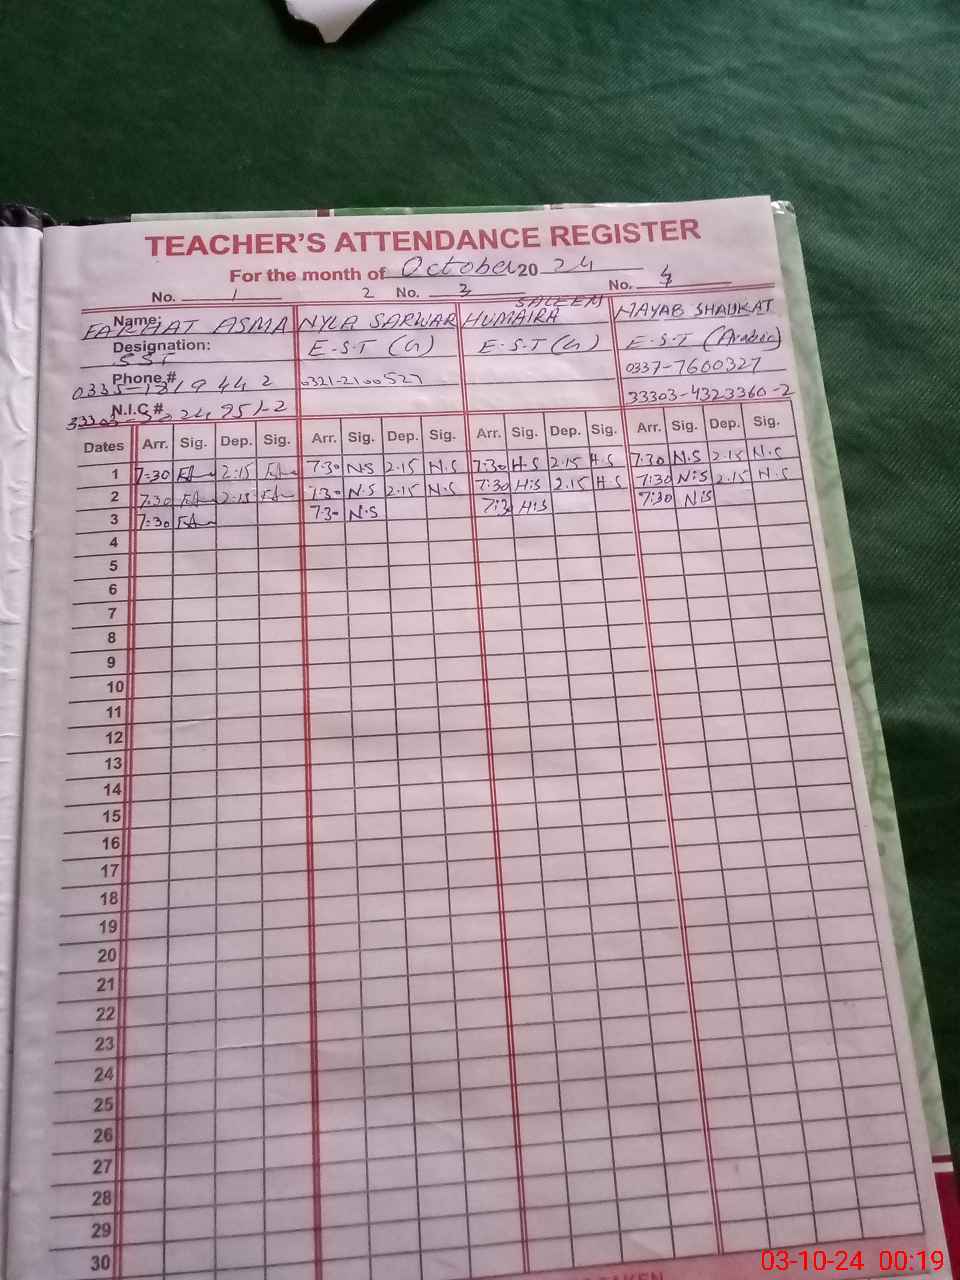 TEACHER'S ATTENDANCE REGISTER
For the month of October 2024
No. 1 2 No. 3 No. 4
Name: FARHAT ASMA NYLA SARWAR HUMAIRA SALEEM NAYAB SHAUKAT
Designation: SST E-S-T (G) E-S-T (G) E-S-T (Arabic)
Phone # 0321-2100527 0337-7600327
N.I.C # 33303-4323360-2
Dates Arr. Sig. Dep. Sig. Arr. Sig. Dep. Sig. Arr. Sig. Dep. Sig. Arr. Sig. Dep. Sig.
1 7:30 FA 2:15 FA 7:30 N.S 2.15 N.S 7:30 H.S 2.15 H.S 7:30 N.S 2.15 N.S
2 7:30 FA 2:15 FA 7:30 N.S 2.15 N.S 7:30 H.S 2.15 H.S 7:30 N.S 2.15 N.S
3 7:30 FA 7:30 N.S 7:3 H.S 7:30 N.S
4
5
6
7
8
9
10
11
12
13
14
15
16
17
18
19
20
21
22
23
24
25
26
27
28
29
30
03-10-24 00:19